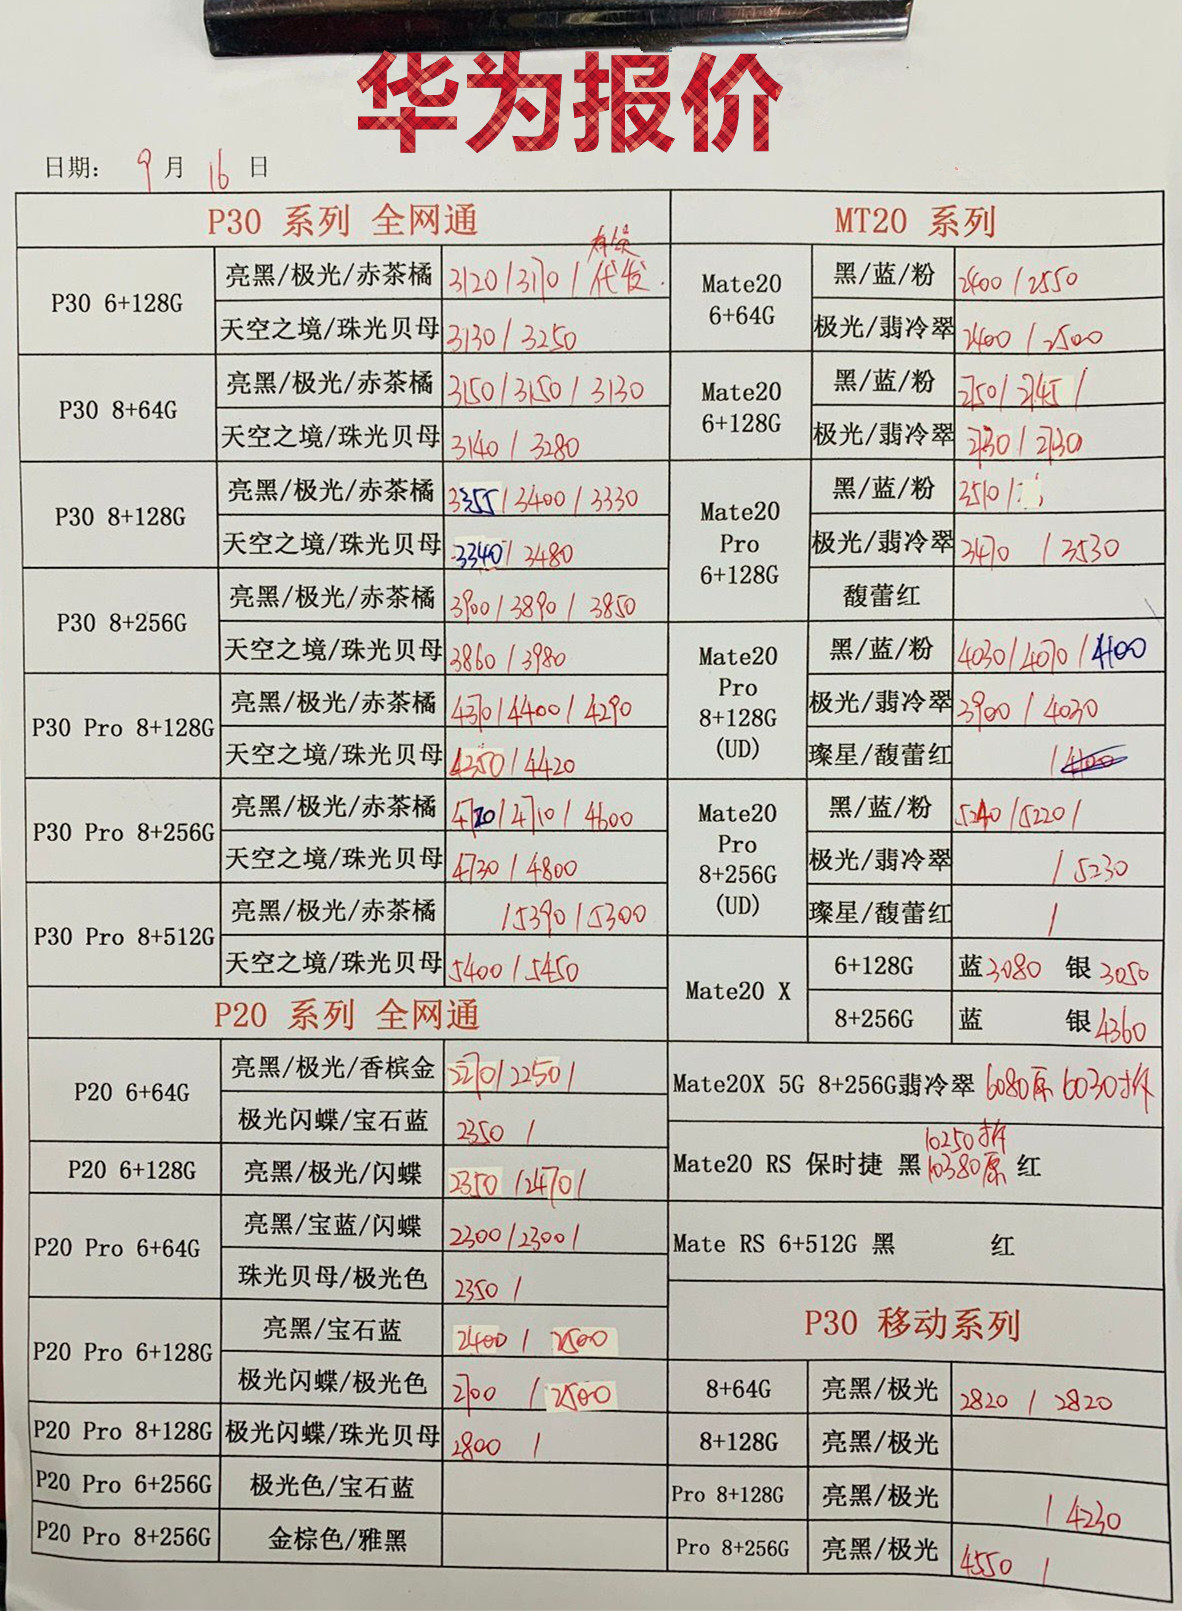 华为报价
日期: 9 月 16 日
P30 系列 全网通
P30 6+128G
亮黑/极光/赤茶橘 3120/3170/代发.
天空之境/珠光贝母 3130/3250
P30 8+64G
亮黑/极光/赤茶橘 3150/3150/3130
天空之境/珠光贝母 3140/3280
P30 8+128G
亮黑/极光/赤茶橘 3355/3400/3330
天空之境/珠光贝母 3340/3480
P30 8+256G
亮黑/极光/赤茶橘 3900/3890/3850
天空之境/珠光贝母 3860/3980
P30 Pro 8+128G
亮黑/极光/赤茶橘 4370/4400/4290
天空之境/珠光贝母 4350/4420
P30 Pro 8+256G
亮黑/极光/赤茶橘 4720/4710/4600
天空之境/珠光贝母 4730/4800
P30 Pro 8+512G
亮黑/极光/赤茶橘 /5390/5300
天空之境/珠光贝母 5400/5450
P20 系列 全网通
P20 6+64G
亮黑/极光/香槟金 2270/2250/
极光闪蝶/宝石蓝 2350/
P20 6+128G
亮黑/极光/闪蝶 2350/2470/
P20 Pro 6+64G
亮黑/宝蓝/闪蝶 2300/2300/
珠光贝母/极光色 2350/
P20 Pro 6+128G
亮黑/宝石蓝 2400/2500
极光闪蝶/极光色 2700/2500
P20 Pro 8+128G
极光闪蝶/珠光贝母 2800/
P20 Pro 6+256G
极光色/宝石蓝
P20 Pro 8+256G
金棕色/雅黑
MT20 系列
Mate20
6+64G
黑/蓝/粉 2400/2550
极光/翡冷翠 2400/2500
Mate20
6+128G
黑/蓝/粉 2750/2745/
极光/翡冷翠 2730/2730
Mate20
Pro
6+128G
黑/蓝/粉 3510/
极光/翡冷翠 3470/3530
馥蕾红
Mate20
Pro
8+128G
(UD)
黑/蓝/粉 4030/4070/4100
极光/翡冷翠 3900/4030
璨星/馥蕾红 /
Mate20
Pro
8+256G
(UD)
黑/蓝/粉 5240/5220/
极光/翡冷翠 /5230
璨星/馥蕾红 /
Mate20 X
6+128G 蓝3080 银3050
8+256G 蓝 银4360
Mate20X 5G 8+256G翡冷翠 6080原 6030拆
10250拆
Mate20 RS 保时捷 黑 10380原 红
Mate RS 6+512G 黑 红
P30 移动系列
8+64G 亮黑/极光 2820/2820
8+128G 亮黑/极光
Pro 8+128G 亮黑/极光 /4230
Pro 8+256G 亮黑/极光 4550/